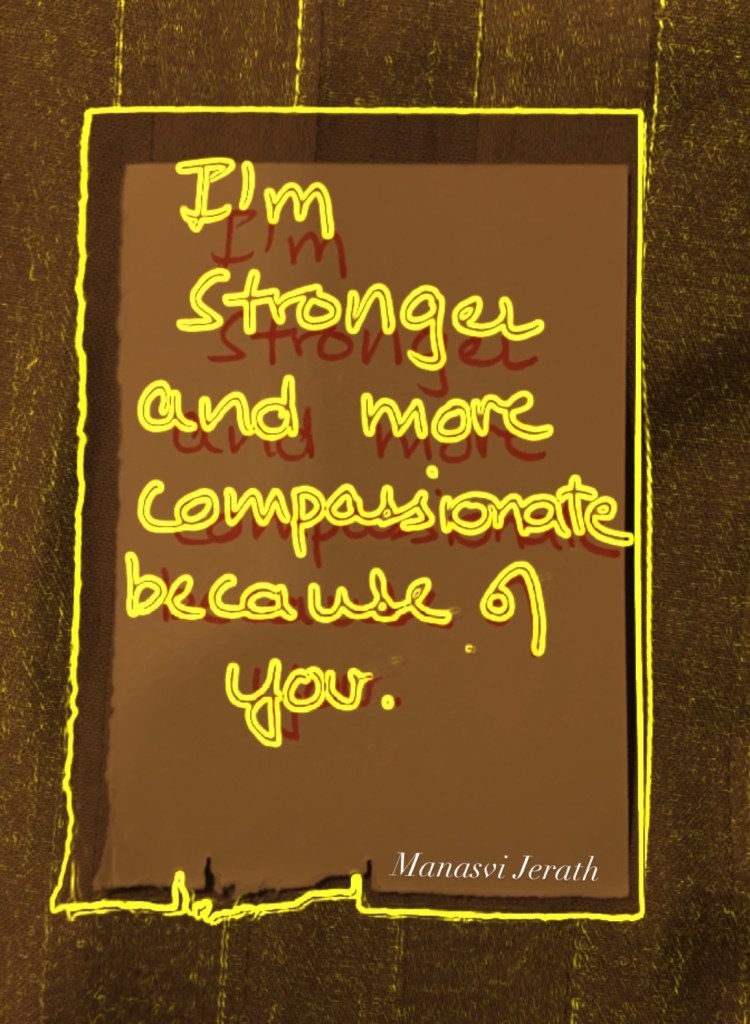 I'm
Stronger
and more
compassionate
because of
you.
Manasvi Jerath